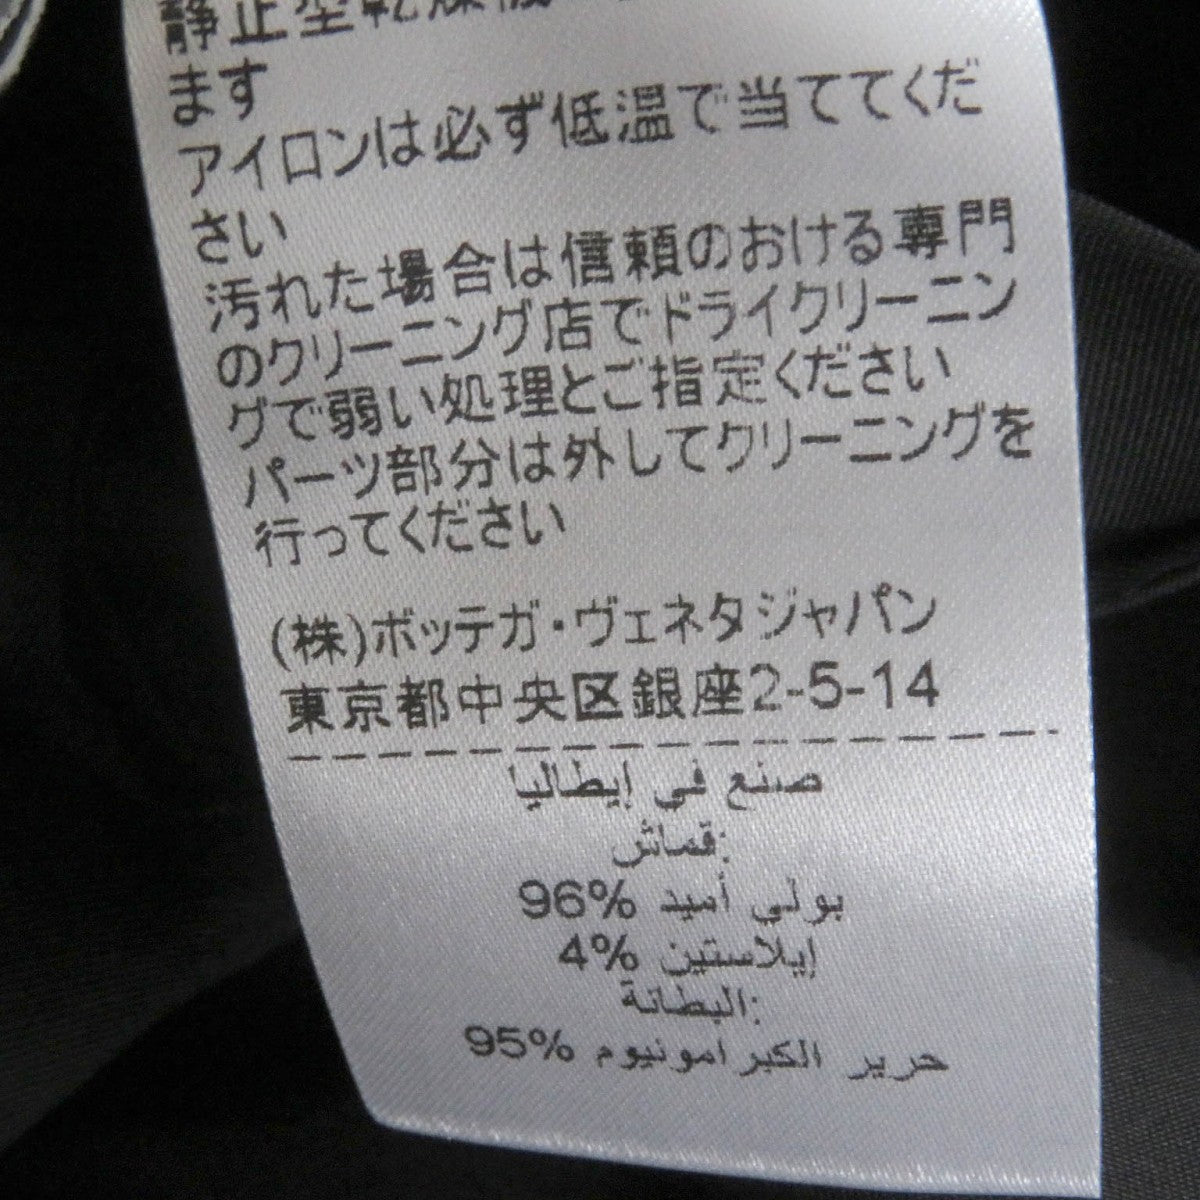 静止型乾燥機
ます
アイロンは必ず低温で当ててくだ
さい
汚れた場合は信頼のおける専門
のクリーニング店でドライクリーニン
グで弱い処理とご指定ください
パーツ部分は外してクリーニングを
行ってください
(株)ボッテガ・ヴェネタジャパン
東京都中央区銀座2-5-14
صنع في إيطاليا
قماش:
بولي أميد 96%
إيلاستين 4%
البطانة:
حرير الكبرامونيوم 95%